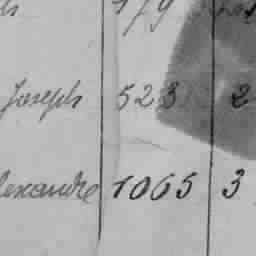 179
Joseph 523 2
lexandre 1065 3